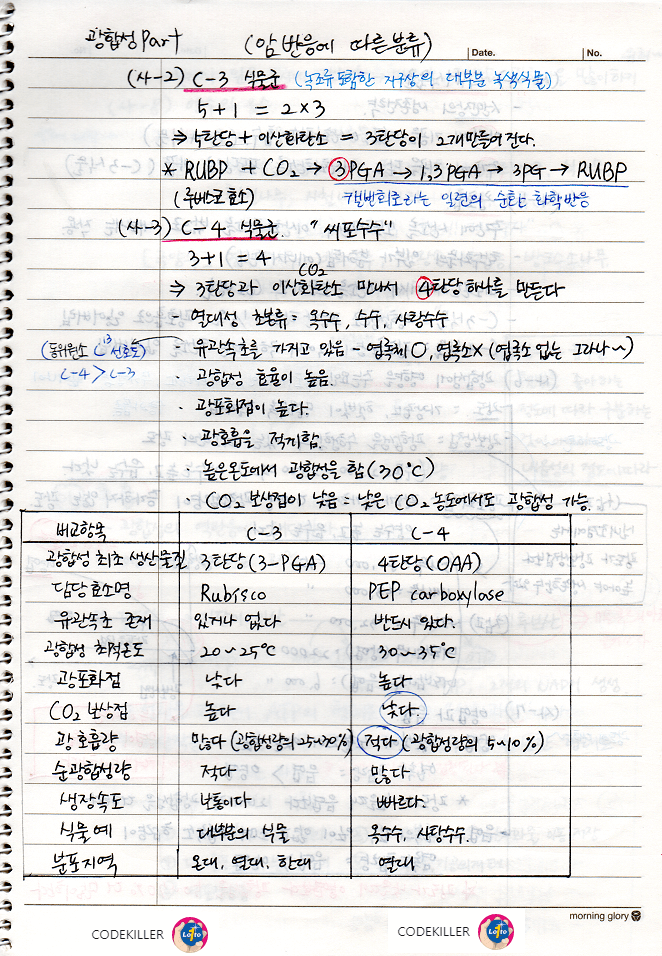 광합성 Part (암반응에 따른 분류) Date. No.
(사-2) C-3 식물군 (녹조류 포함한 지구상의 대부분 녹색식물)
5 + 1 = 2 × 3
⇒ 5탄당 + 이산화탄소 = 3탄당이 2개 만들어 진다.
* RUBP + CO₂ → ③PGA → 1,3 PGA → 3PG → RUBP
(루비스코 효소) 캘빈회로라는 일련의 순환 화학반응
(사-3) C-4 식물군. "씨포수수"
3 + 1 = 4
CO₂
⇒ 3탄당과 이산화탄소 만나서 ④탄당 하나를 만든다
- 열대성 초본류 : 옥수수, 수수, 사탕수수
(동위원소 C¹³ 선호도) - 유관속초를 가지고 있음 - 엽록체 O, 엽록소X (엽록소 없는 그라나~)
C-4 > C-3 · 광합성 효율이 높음.
· 광포화점이 높다.
· 광호흡을 적게함.
· 높은온도에서 광합성을 함 (30℃)
· CO₂ 보상점이 낮음 = 낮은 CO₂ 농도에서도 광합성 가능.
비교항목 C-3 C-4
광합성 최초 생산물질 3탄당 (3-PGA) 4탄당 (OAA)
담당효소명 Rubisco PEP carboxylase
유관속초 존재 있거나 없다 반드시 있다.
광합성 최적온도 20~25℃ 30~35℃
광포화점 낮다 높다
CO₂ 보상점 높다 낮다.
광호흡량 많다 (광합성량의 25~30%) 적다 (광합성량의 5~10%)
순광합성량 적다 많다
생장속도 보통이다 빠르다.
식물 예 대부분의 식물 옥수수, 사탕수수.
분포지역 온대, 열대, 한대 열대
morning glory
CODEKILLER Lotto CODEKILLER Lotto